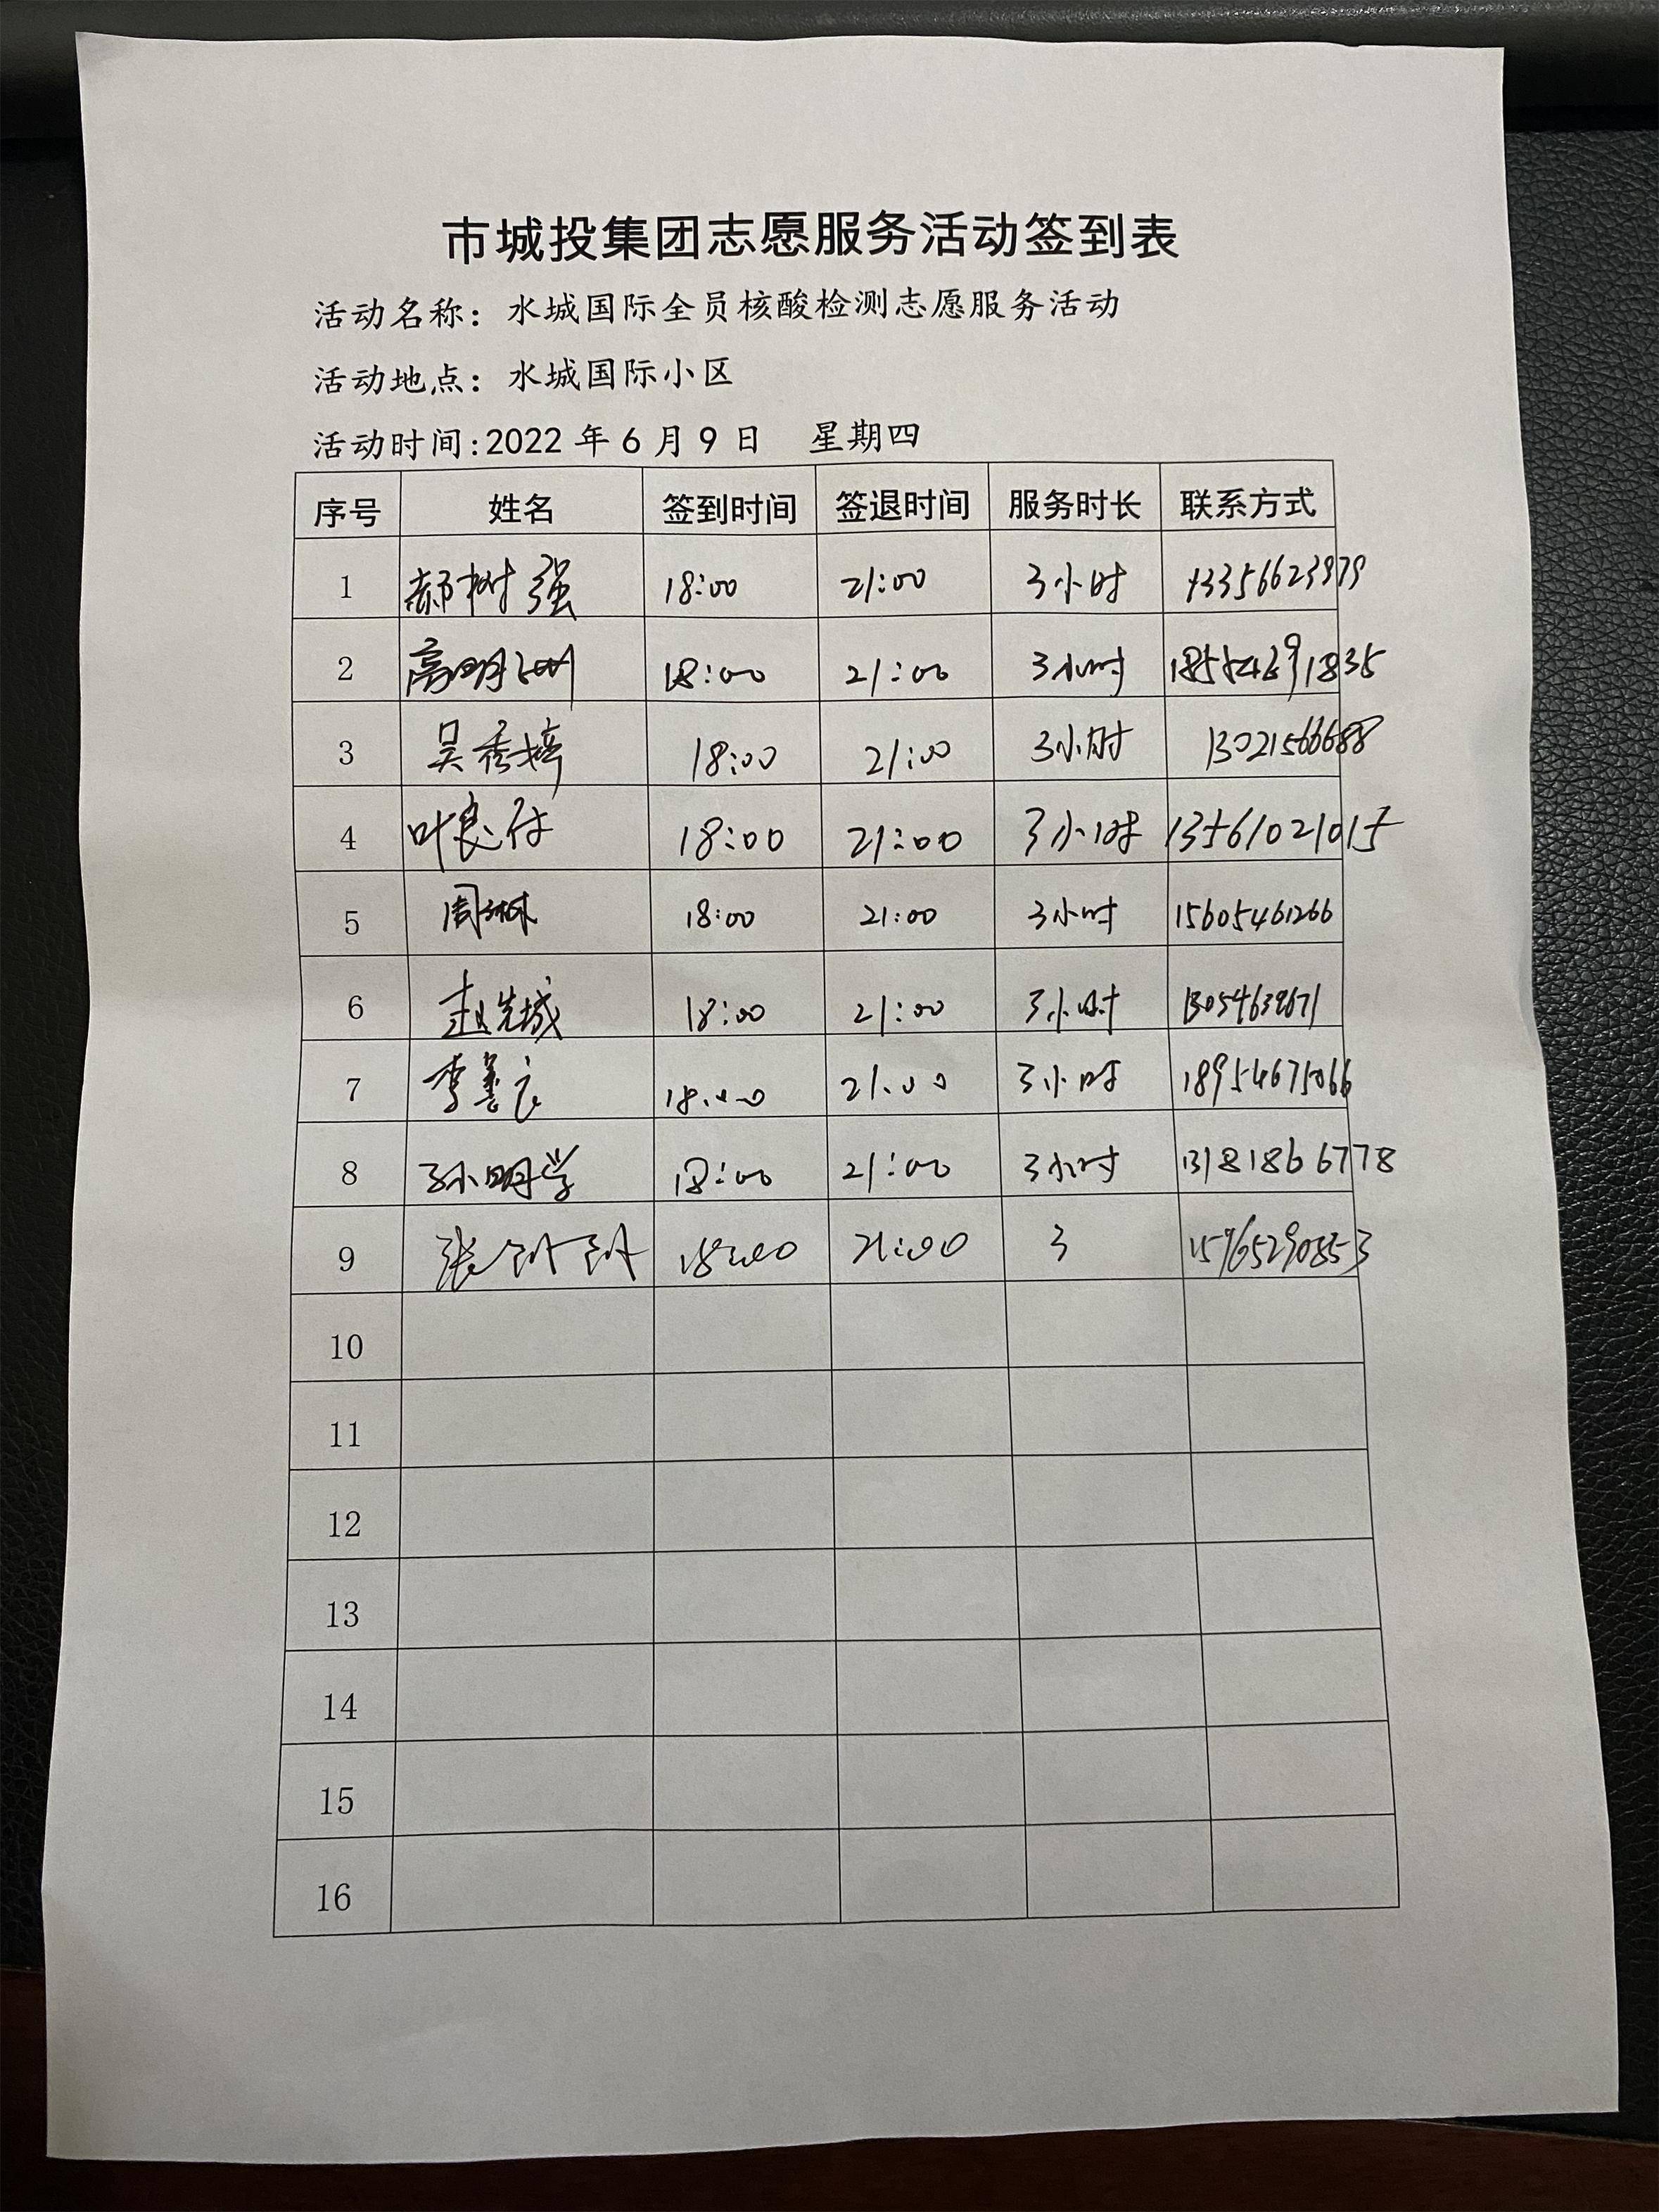 市城投集团志愿服务活动签到表
活动名称：水城国际全员核酸检测志愿服务活动
活动地点：水城国际小区
活动时间:2022 年 6 月 9 日 星期四
序号 姓名 签到时间 签退时间 服务时长 联系方式
1 郝树强 18:00 21:00 3小时 13356623979
2 高明 18:00 21:00 3小时
3 吴秀婷 18:00 21:00 3小时 13021566688
4 叶良付 18:00 21:00 3小时 13561021015
5 周琳 18:00 21:00 3小时 15605461266
6 赵先城 18:00 21:00 3小时
7 李善 18:00 21:00 3小时 18954675066
8 孙明学 18:00 21:00 3小时 13181866778
9 张 18:00 21:00 3 15965290853
10
11
12
13
14
15
16